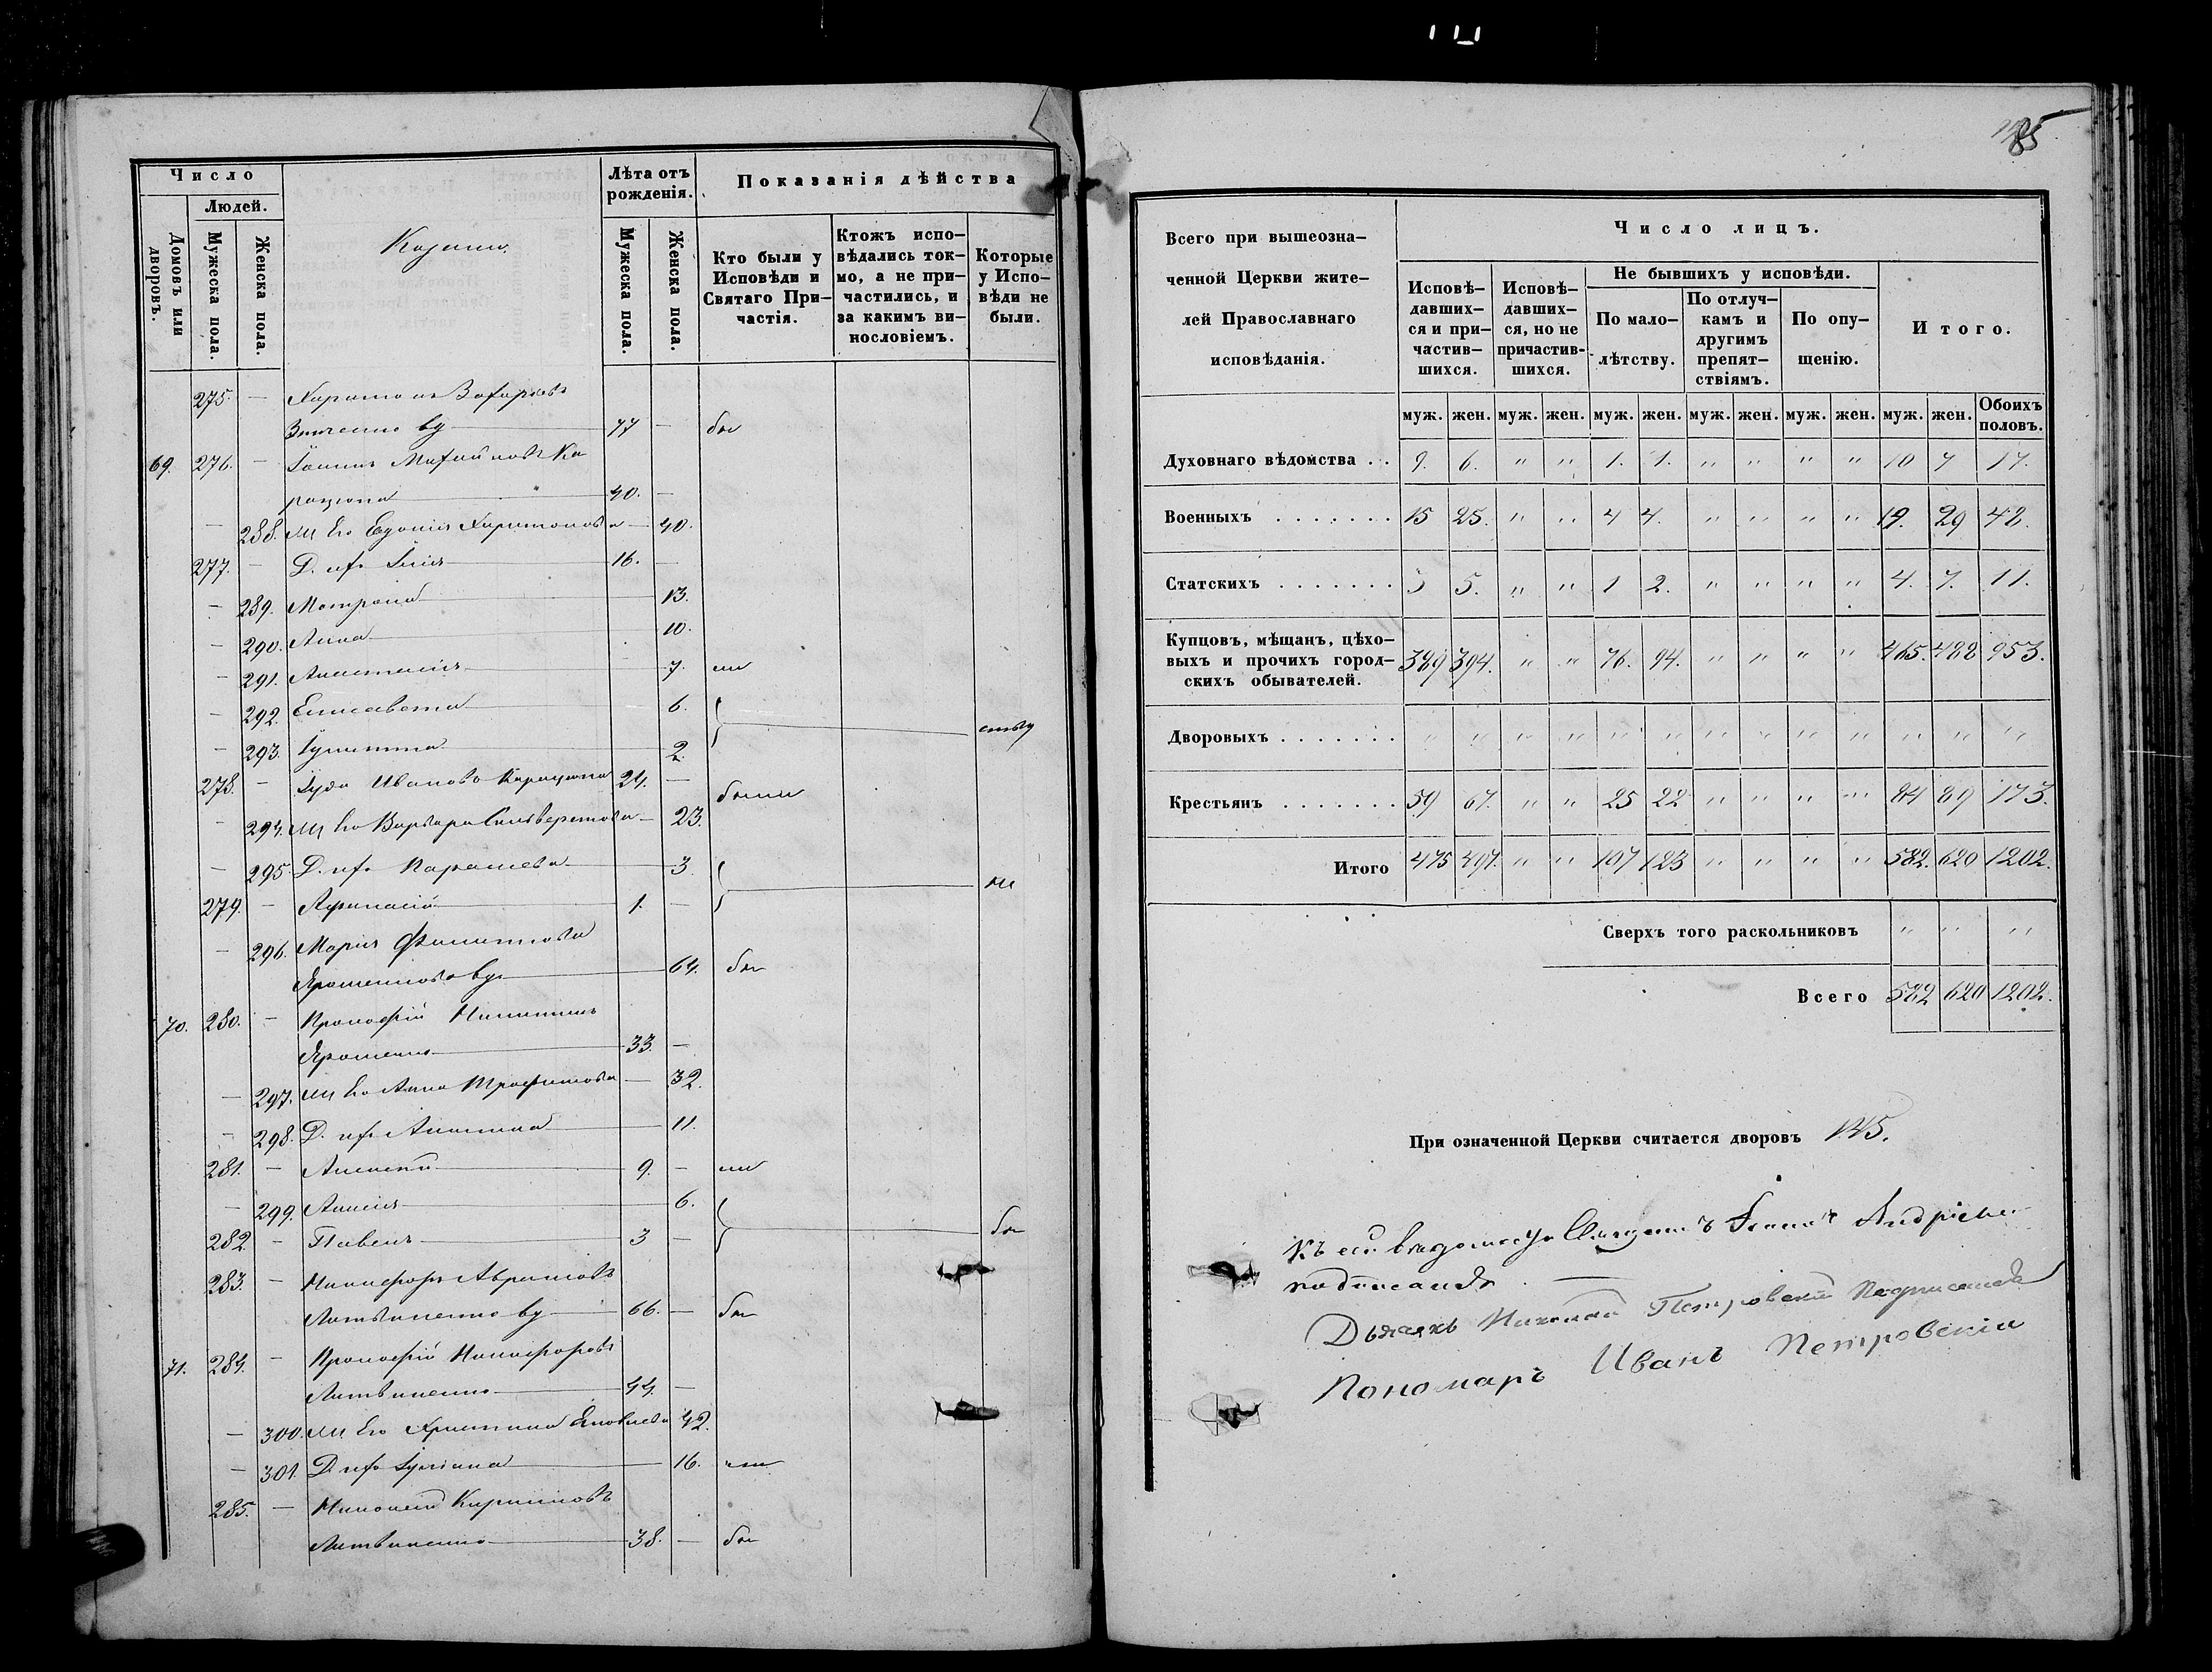 85
Число
Людей.
Домовъ или дворовъ.
Мужеска пола.
Женска пола.
Козаки.
Лѣта отъ рожденія.
Мужеска пола.
Женска пола.
Показанія дѣйства
Кто были у Исповѣди и Святаго При-частія.
Ктожъ испо-вѣдались ток-мо, а не при-частились, и за какимъ ви-нословіемъ.
Которые у Испо-вѣди не были.
275. — Харитонъ Захаріевъ
Зинченко ву 77 —
69. 276. — Іоаннъ Ка
рацюпа 40. —
— 288. Ж. Его Евдокія Харитонова — 40.
277. — Д. ихъ 16. —
— 289. Матрона 13.
— 290. Анна 10.
— 291. Анастасія 7.
— 292. Елисавета 6.
— 293. 2.
278. — Іуда Ивановъ Карацюпа 24. —
были
— 294. Ж. Его Варвара Сильверстова — 23.
— 295. Д. ихъ Параскева 3.
279. — Афанасій 1. —
— 296. Марія Филиппова
Ярошенкова ву 64.
70. 280. — Прокофій Никитинъ
Ярошенко 33. —
— 297. Ж. Его Анна Трофимова — 32.
— 298. Д. ихъ Акилина 11.
281. — Алексѣй 9. —
— 299. Анисія 6.
282. — Павелъ 3 —
283. — Никифоръ Авраамовъ
Литвиненко ву 66. —
71. 284. — Прокофій Никифоровъ
Литвиненко 44. —
— 300. Ж. Его Христина Яковлева 42.
— 301. Д. ихъ Іуліана 16.
285. — Николай Кириловъ
Литвиненко 38. —
Всего при вышеозна-ченной Церкви жите-лей Православнаго исповѣданія.
Число лицъ.
Исповѣ-давших-ся и при-частив-шихся.
Исповѣ-давших-ся, но не причастив-шихся.
Не бывшихъ у исповѣди.
По мало-лѣтству.
По отлуч-камъ и другимъ препят-ствіямъ.
По опу-щенію.
Итого.
муж. жен. муж. жен. муж. жен. муж. жен. муж. жен. муж. жен. Обоихъ половъ.
Духовнаго вѣдомства . . 9. 6. " " 1. 1. " " " " 10 7 17.
Военныхъ . . . . . . . 15 25. " " 4 4. " " " " 19. 29 48.
Статскихъ . . . . . . . 3 5. " " 1 2. " " " " 4. 7. 11.
Купцовъ, мѣщанъ, цѣхо-выхъ и прочихъ город-скихъ обывателей. 389 394. " " 76. 94. " " " " 465. 488 953.
Дворовыхъ . . . . . . . " " " " " " " " " " " " "
Крестьянъ . . . . . . . 59 67. " " 25 22 " " " " 84 89 173.
Итого 475 497. " " 107 123 " " " " 582. 620 1202.
Сверхъ того раскольниковъ " " "
Всего 582 620 1202.
При означенной Церкви считается дворовъ 145.
Къ сей Священникъ Іоаннъ
подписался
Дьячекъ Николай Петровскій Подписался
Пономаръ Иванъ Петровскій